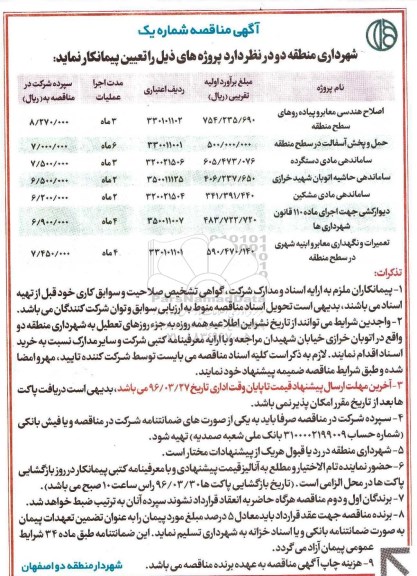 آگهی مناقصه شماره یک
شهرداری منطقه دو در نظر دارد پروژه های ذیل را تعیین پیمانکار نماید:
نام پروژه مبلغ برآورد اولیه تقریبی (ریال) ردیف اعتباری مدت اجرا عملیات سپرده شرکت در مناقصه به (ریال)
اصلاح هندسی معابر و پیاده روهای سطح منطقه ۷۵۴/۲۳۵/۶۹۰ ۳۳۰۱۰۱۱۰۲ ۳ ماه ۸/۲۷۰/۰۰۰
حمل و پخش آسفالت در سطح منطقه ۵۰۰/۰۰۰/۰۰۰ ۳۳۰۰۱۱۰۰۱ ۶ ماه ۷/۰۰۰/۰۰۰
ساماندهی مادی دستگرده ۶۰۵/۴۷۳/۰۷۶ ۳۲۰۰۲۱۵۰۶ ۳ ماه ۷/۵۰۰/۰۰۰
ساماندهی حاشیه اتوبان شهید خرازی ۴۰۶/۲۳۷/۶۵۰ ۳۵۰۰۱۱۱۲۵ ۲ ماه ۶/۵۰۰/۰۰۰
ساماندهی مادی مشکین ۳۴۱/۳۹۱/۴۴۰ ۳۲۰۰۲۱۵۰۴ ۲ ماه ۶/۲۰۰/۰۰۰
دیوارکشی جهت اجرای ماده ۱۱۰ قانون شهرداری ها ۴۸۳/۷۲۲/۷۲۰ ۳۵۰۰۱۱۰۰۷ ۴ ماه ۶/۹۰۰/۰۰۰
تعمیرات و نگهداری معابر و ابنیه شهری در سطح منطقه ۵۹۰/۴۷۰/۱۴۰ ۳۳۰۱۰۱۱۰۱ ۴ ماه ۷/۴۵۰/۰۰۰
تذکرات:
۱- پیمانکاران ملزم به ارایه اسناد و مدارک شرکت، گواهی تشخیص صلاحیت و سوابق کاری خود قبل از تهیه
اسناد می باشند، بدیهی است تحویل اسناد مناقصه منوط به ارزیابی سوابق و توان شرکت کنندگان می باشد.
۲- واجدین شرایط می توانند از تاریخ نشر این اطلاعیه همه روزه به جزء روزهای تعطیل به شهرداری منطقه دو
واقع در اتوبان خرازی خیابان شهیدان مراجعه و با ارایه معرفینامه کتبی شرکت و سایر مدارک نسبت به خرید
اسناد اقدام نمایند. لازم به ذکر است کلیه اسناد مناقصه می بایست توسط شرکت کننده تایید، مهر و امضا
شده و طبق شرایط مناقصه ضمیمه پیشنهاد خود نمایند.
۳- آخرین مهلت ارسال پیشنهاد قیمت تا پایان وقت اداری تاریخ ۹۶/۰۳/۲۷ می باشد، بدیهی است دریافت پاکت
ها بعد از تاریخ مقرر امکان پذیر نمی باشد.
۴- سپرده شرکت در مناقصه صرفا باید به یکی از صورت های ضمانتنامه شرکت در مناقصه و یا فیش بانکی
(شماره حساب ۳۱۰۰۰۰۲۱۹۹۰۰۹ بانک ملی شعبه صمدیه) تهیه شود.
۵- شهرداری منطقه در رد یا قبول هر یک از پیشنهادات مختار است.
۶- حضور نماینده تام الاختیار و مطلع به آنالیز قیمت پیشنهادی و با معرفینامه کتبی پیمانکار در روز بازگشایی
پاکت ها در محل الزامی است. (تاریخ بازگشایی پاکت ها ۹۶/۰۳/۳۰ راس ساعت ۱۰ صبح می باشد).
۷- برندگان اول و دوم مناقصه هرگاه حاضر به انعقاد قرارداد نشوند سپرده آنان به ترتیب ضبط خواهد شد.
۸- برنده مناقصه جهت عقد قرارداد باید معادل ۵ درصد مبلغ مورد پیمان را به عنوان تضمین تعهدات پیمان
به صورت ضمانتنامه بانکی و یا اسناد خزانه به شهرداری تسلیم نماید. این ضمانتنامه طبق ماده ۳۴ شرایط
عمومی پیمان آزاد می گردد.
۹- هزینه چاپ آگهی مناقصه به عهده برنده مناقصه می باشد.
شهردار منطقه دو اصفهان